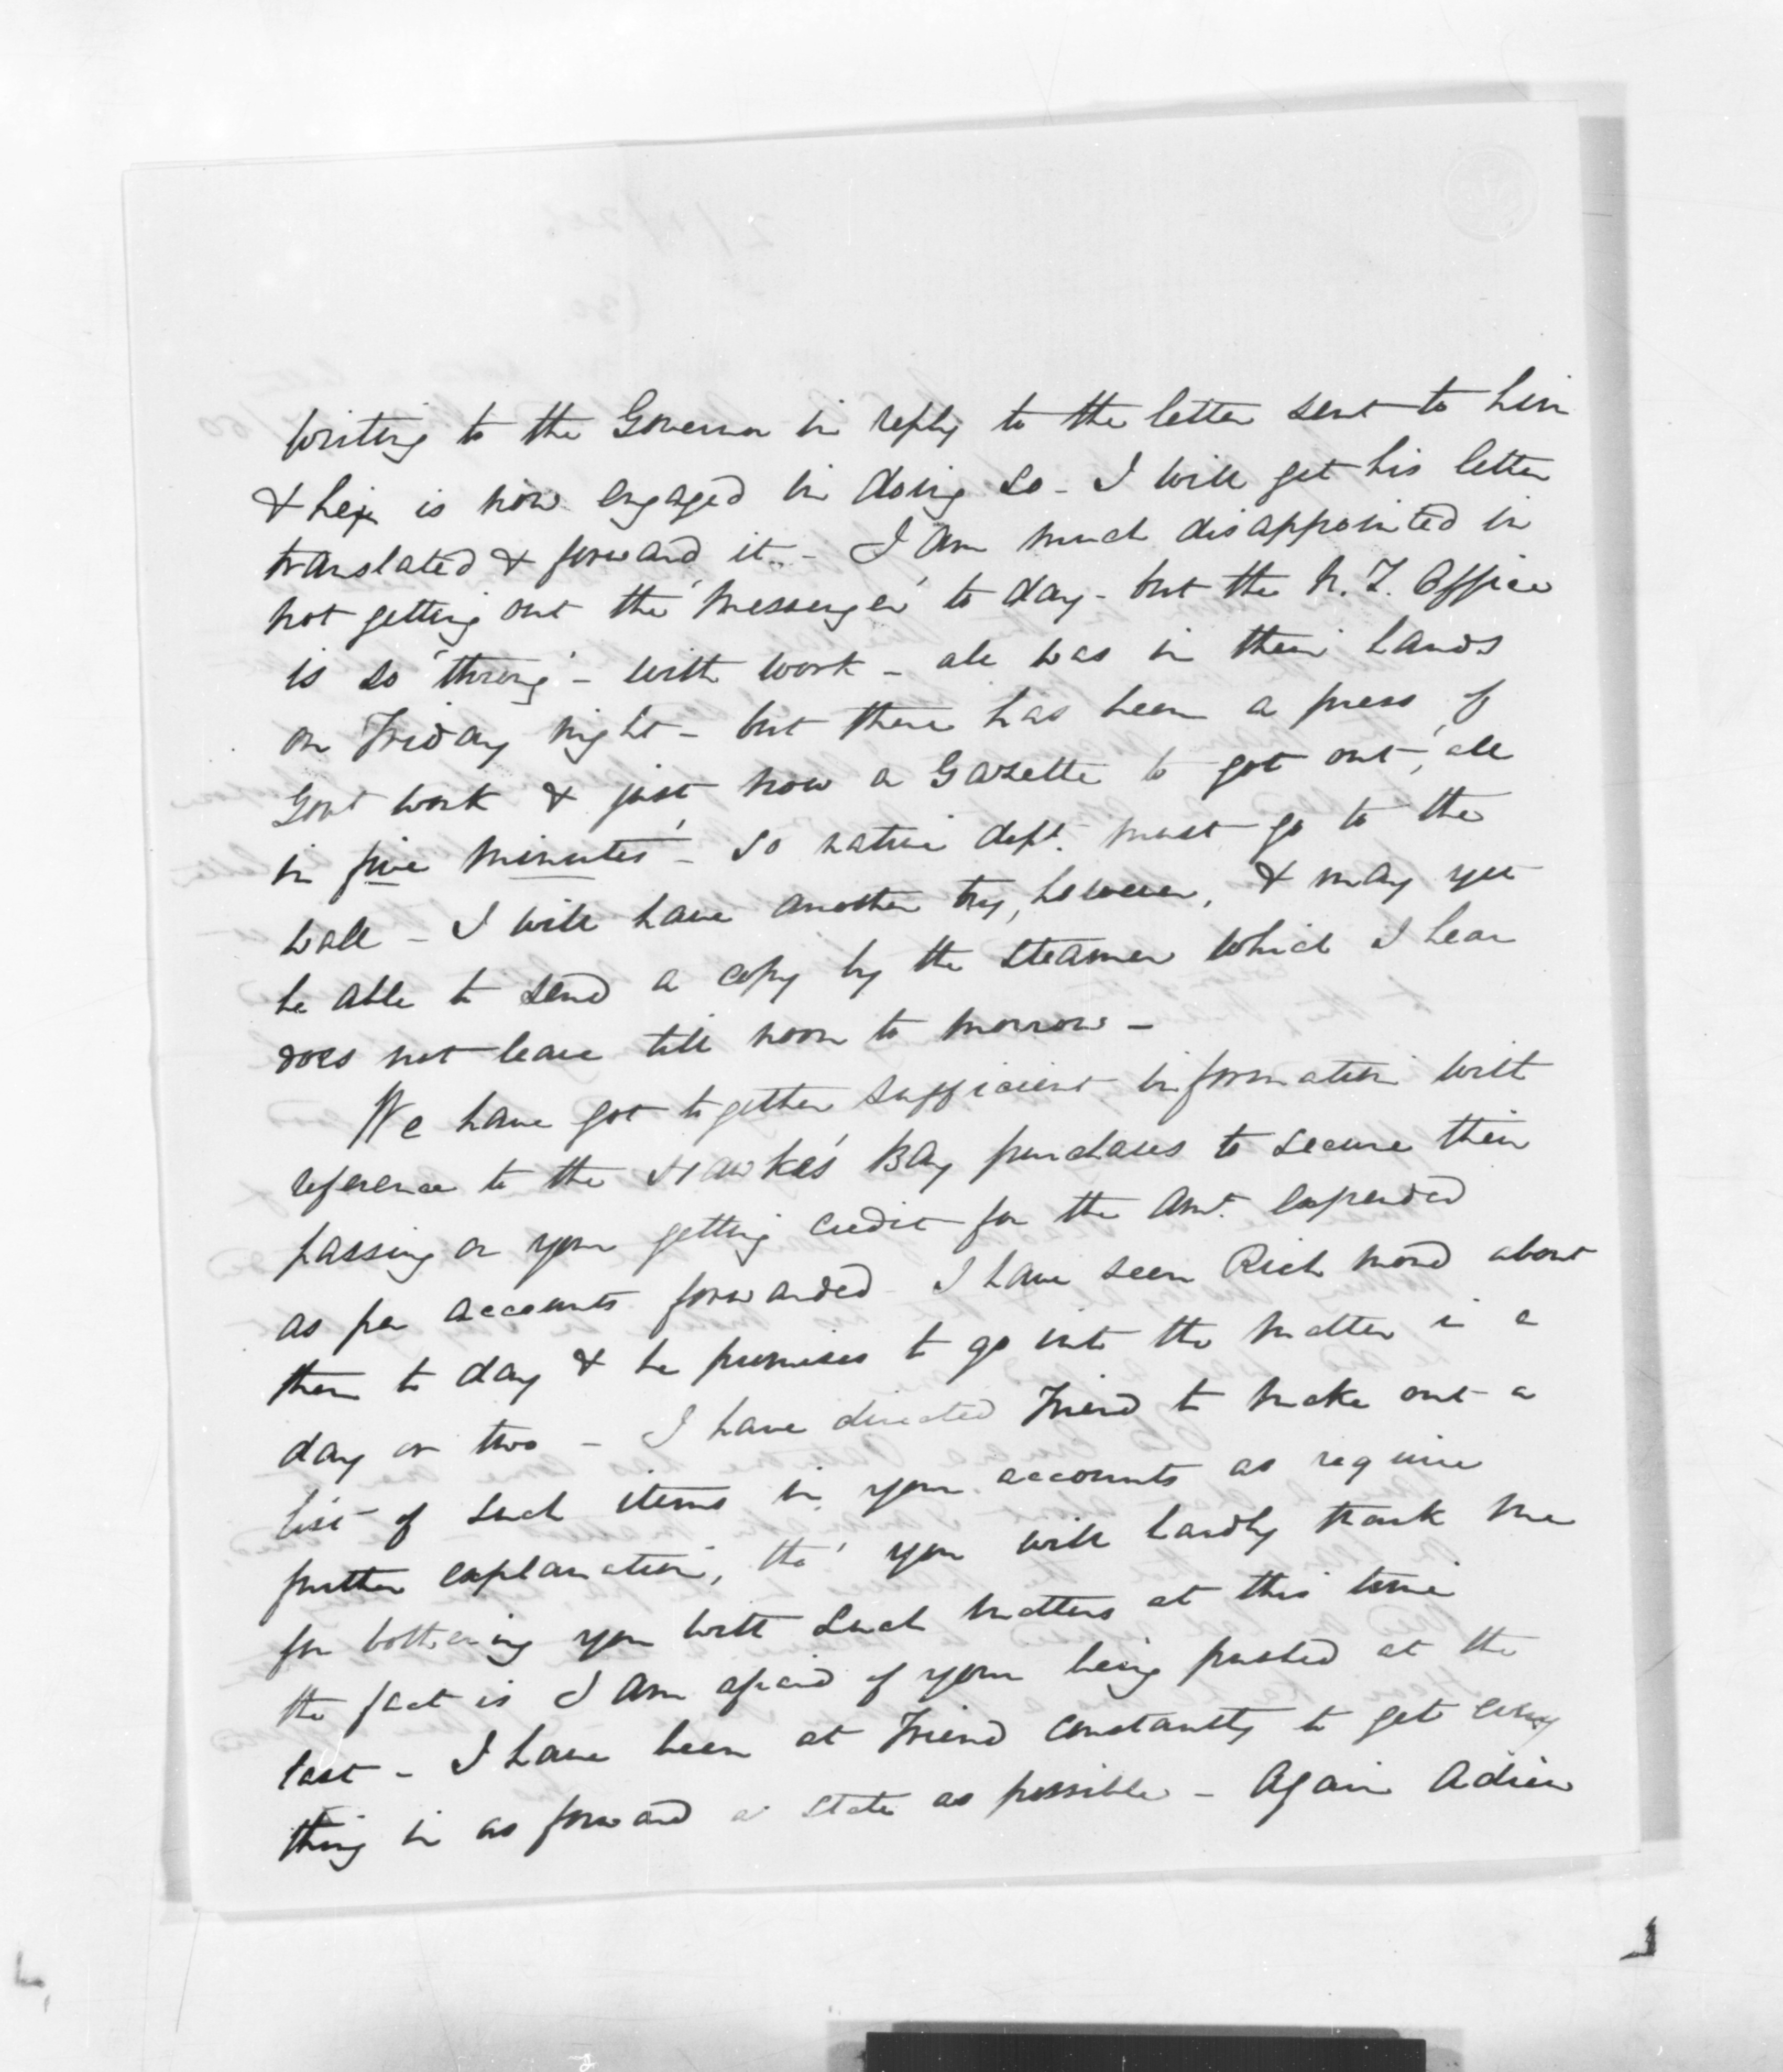 writing to the Governor in reply to the letter sent to him
& he is now engaged in doing so - I will get his letter
translated & forward it. - I am much disappointed in
not getting out the 'Messenger' to day - but the N. Z. Office
is so 'throng' - with work - all was in their hands
on Friday night - but there has been a press of
Govt work & just now a Gazette to get out, 'all
in five minutes' - so native dept. must go to the
wall - I will have another try, however, & may yet
be able to send a copy by the steamer which I hear
does not leave till noon to morrow -
We have got together sufficient information with
reference to the Hawke's Bay purchases to secure their
passing or your getting credit for the amt. expended
as per accounts forwarded I have seen Richmond about
them to day & he promises to go into the matter in a
day or two - I have directed Friend to make out a
list of such items in your accounts as require
further explanation, tho' you will hardly thank me
for bothering you with such matters at this time
the fact is I am afraid of your being pushed at the
last - I have been at Friend constantly to get every
thing in as forward a state as possible - Again Adieu